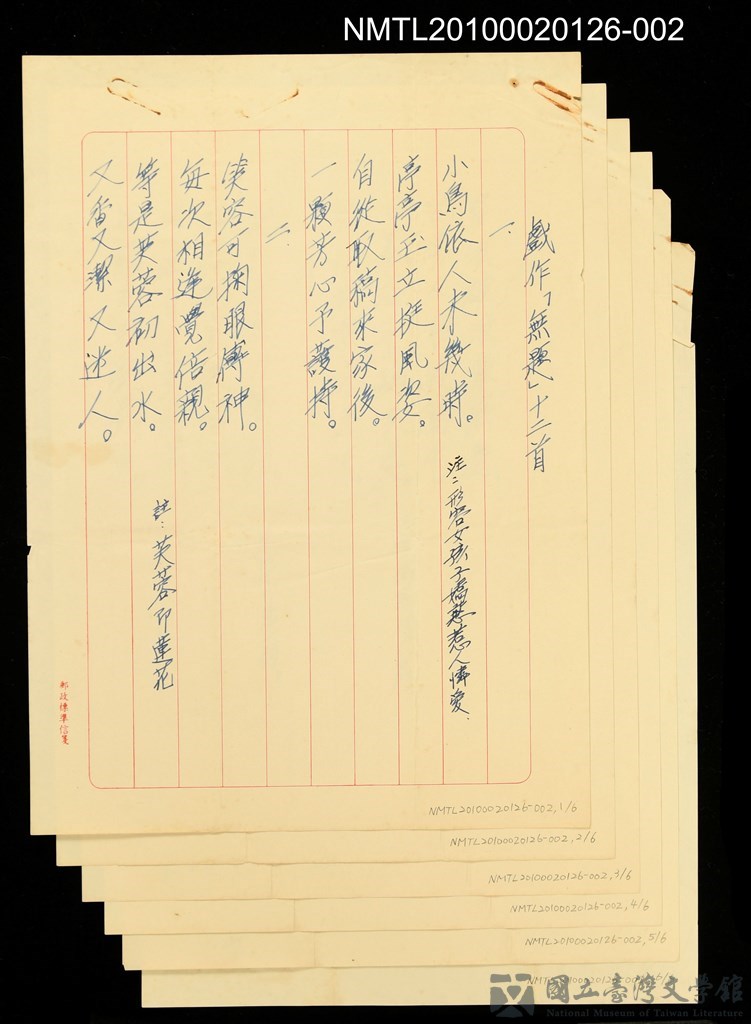 NMTL20100020126-002
戲作「無題」十二首
一.
小鳥依人未幾時。 註:形容女孩子嬌憨惹人憐愛.
亭亭玉立挺風姿。
自從取稿來家後。
一顆芳心予護持。
二.
笑容可掬眼傳神。
每次相逢覺倍親。
等是芙蓉初出水。 註:芙蓉即蓮花
又香又潔又迷人。
郵政標準信箋
NMTL20100020126-002,1/6
NMTL20100020126-002,2/6
NMTL20100020126-002,3/6
NMTL20100020126-002,4/6
NMTL20100020126-002,5/6
NMTL20100020126-002,6/6
國立臺灣文學館
National Museum of Taiwan Literature